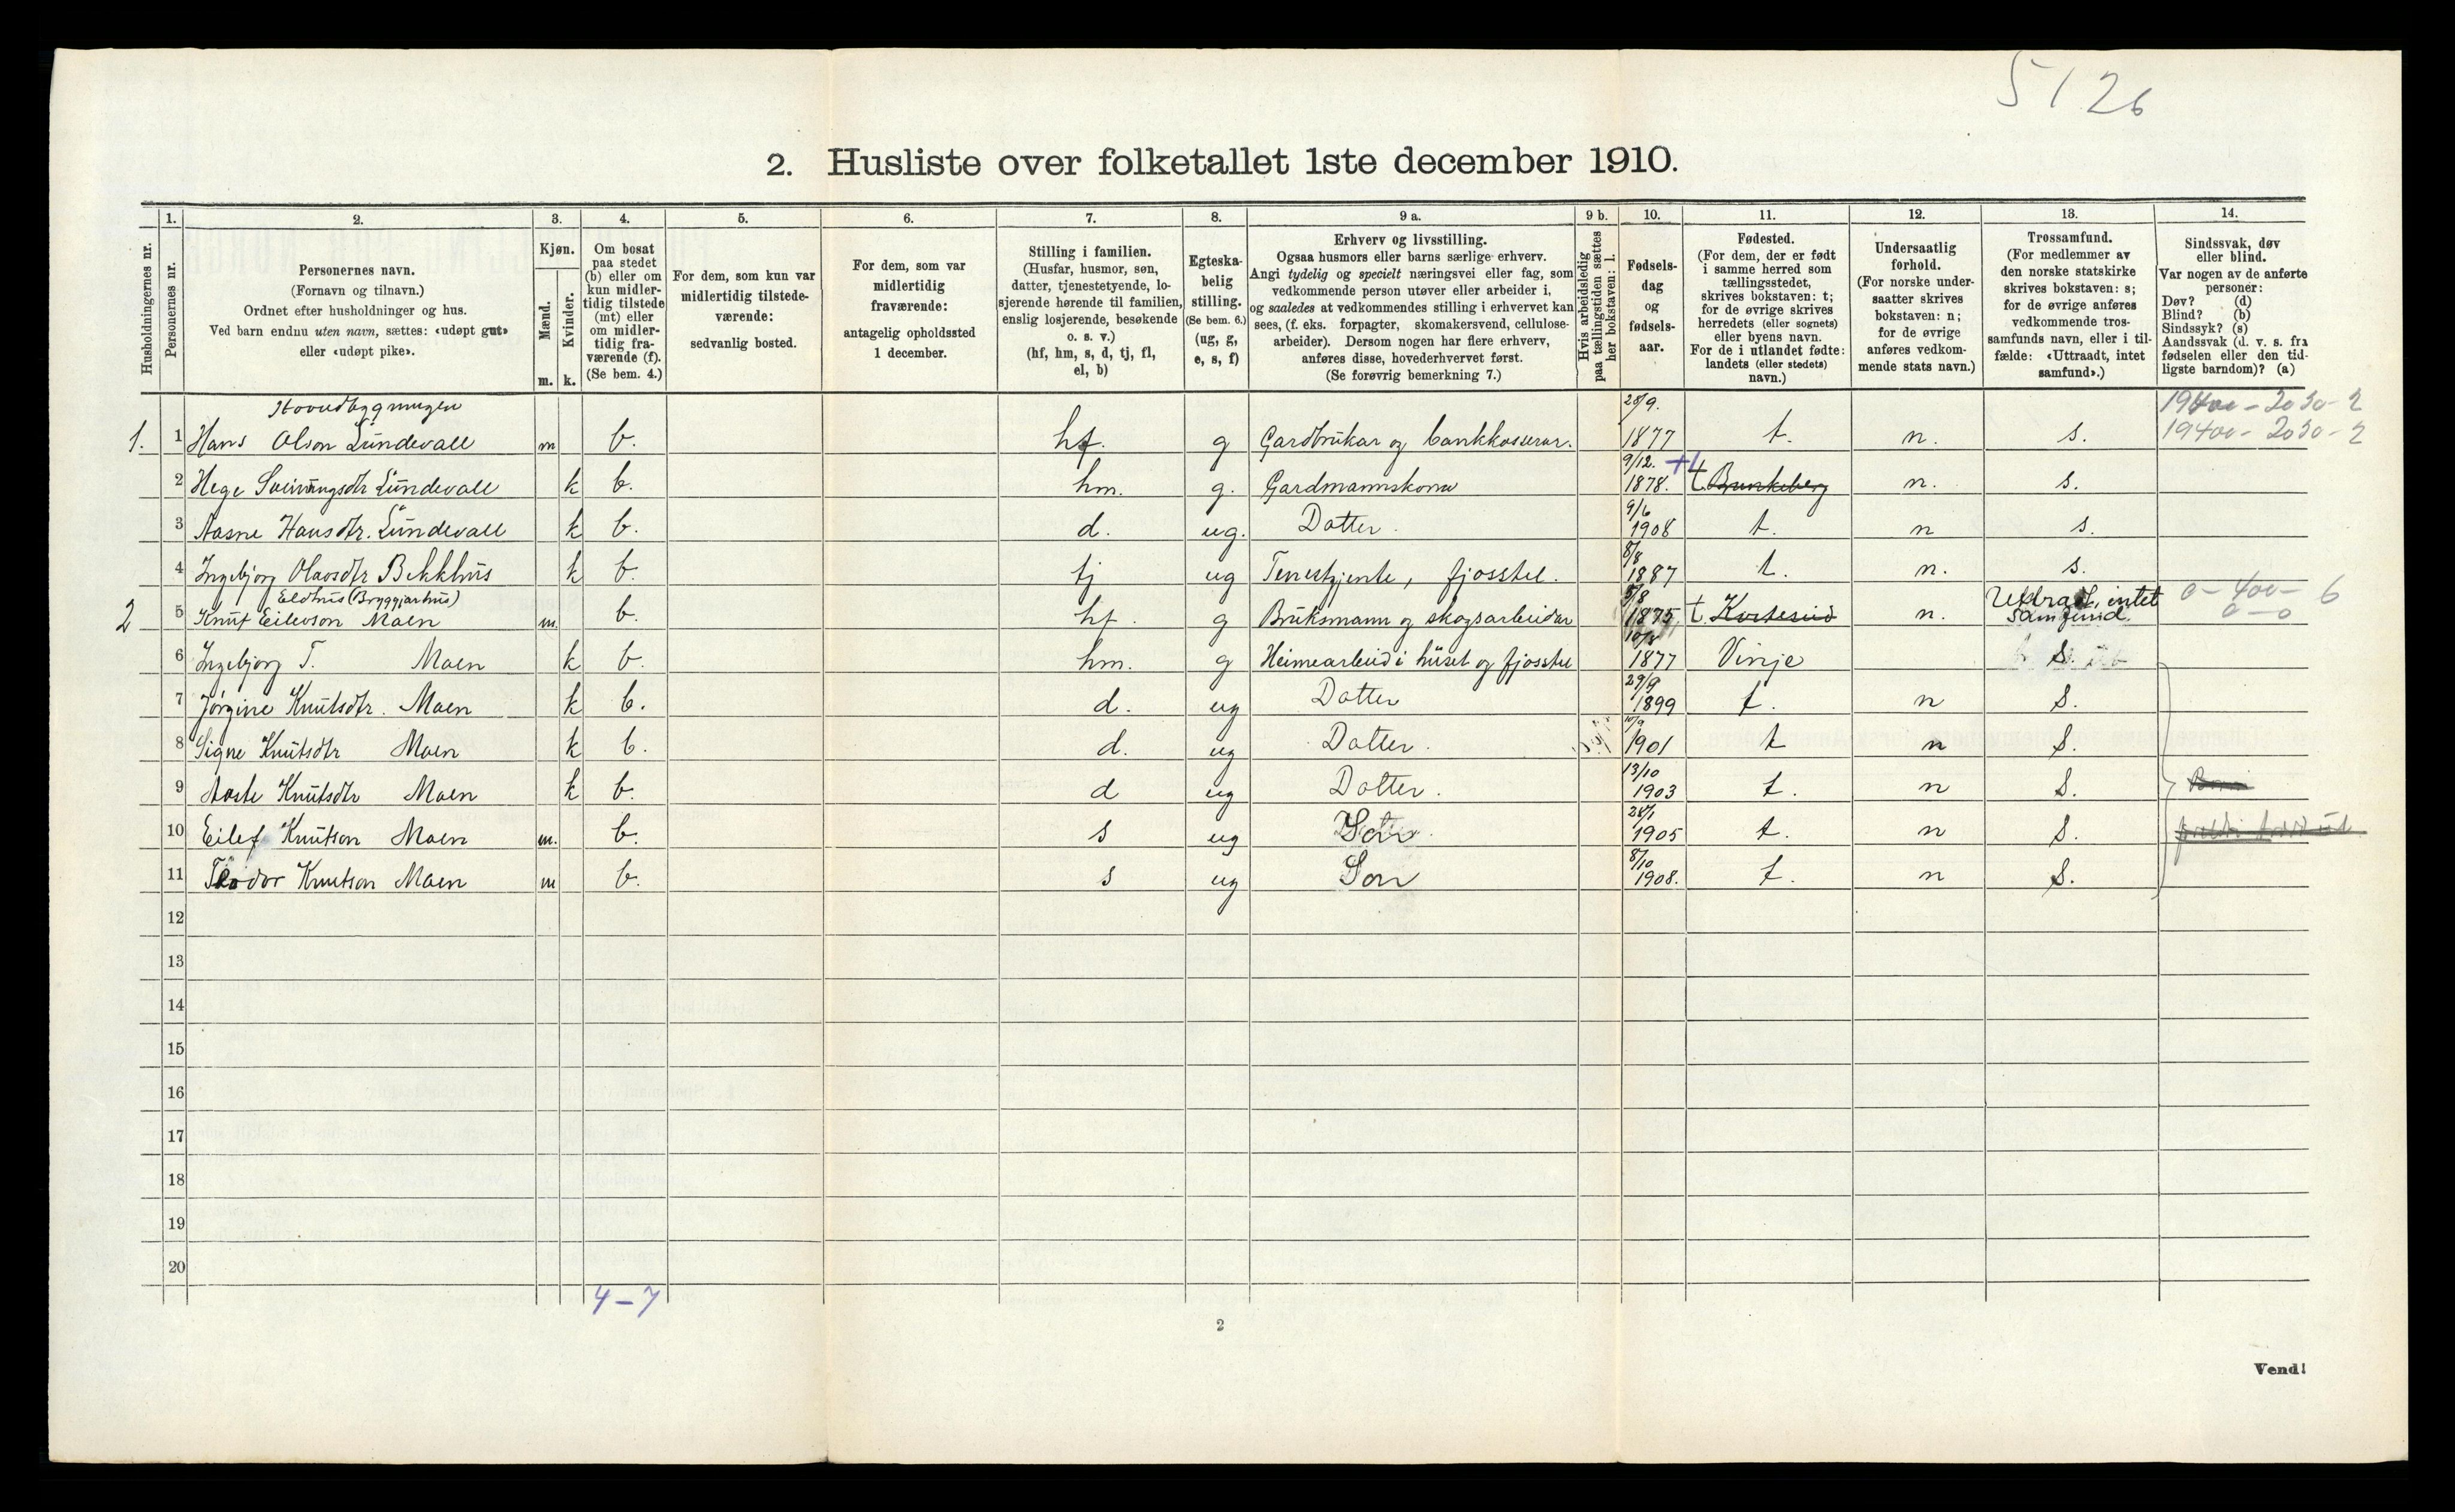 5/26
2. Husliste over folketallet 1ste december 1910.
Husholdningernes nr.
1.
Personernes nr.
2.
Personernes navn.
(Fornavn og tilnavn.)
Ordnet efter husholdninger og hus.
Ved barn endnu uten navn, sættes: «udøpt gut»
eller «udøpt pike».
3.
Kjøn.
Mænd.
Kvinder.
m. k.
4.
Om bosat
paa stedet
(b) eller om
kun midler-
tidig tilstede
(mt) eller
om midler-
tidig fra-
værende (f).
(Se bem. 4.)
5.
For dem, som kun var
midlertidig tilstede-
værende:
sedvanlig bosted.
6.
For dem, som var
midlertidig
fraværende:
antagelig opholdssted
1 december.
7.
Stilling i familien.
(Husfar, husmor, søn,
datter, tjenestetyende, lo-
sjerende hørende til familien,
enslig losjerende, besøkende
o. s. v.)
(hf, hm, s, d, tj, fl,
el, b)
8.
Egteska-
belig
stilling.
(Se bem. 6.)
(ug, g,
e, s, f)
9 a.
Erhverv og livsstilling.
Ogsaa husmors eller barns særlige erhverv.
Angi tydelig og specielt næringsvei eller fag, som
vedkommende person utøver eller arbeider i,
og saaledes at vedkommendes stilling i erhvervet kan
sees, (f. eks. forpagter, skomakersvend, cellulose-
arbeider). Dersom nogen har flere erhverv,
anføres disse, hovederhvervet først.
(Se forøvrig bemerkning 7.)
9 b.
Hvis arbeidsledig
paa tællingstiden sættes
her bokstaven: l.
10.
Fødsels-
dag
og
fødsels-
aar.
11.
Fødested.
(For dem, der er født
i samme herred som
tællingsstedet,
skrives bokstaven: t;
for de øvrige skrives
herredets (eller sognets)
eller byens navn.
For de i utlandet fødte:
landets (eller stedets)
navn.)
12.
Undersaatlig
forhold.
(For norske under-
saatter skrives
bokstaven: n;
for de øvrige
anføres vedkom-
mende stats navn.)
13.
Trossamfund.
(For medlemmer av
den norske statskirke
skrives bokstaven: s;
for de øvrige anføres
vedkommende tros-
samfunds navn, eller i til-
fælde: «Uttraadt, intet
samfund».)
14.
Sindssvak, døv
eller blind.
Var nogen av de anførte
personer:
Døv? (d)
Blind? (b)
Sindssyk? (s)
Aandssvak (d. v. s. fra
fødselen eller den tid-
ligste barndom)? (a)
Hovudbygningen 28/9. 19400 - 2030 - 2
1. 1 Hans Olson Lundevall m b. hf. g Gardbrukar og bankkasserar. 1877 t. n. s. 19400 - 2030 - 2
2 Hege Sveinungsdtr Lundevall k b. hm. g. Gardmannskona 9/12. 1878. t Brunkeberg n. s.
3 Aasne Hansdtr. Lundevall k b. d. ug. Dotter. 9/6 1908 t. n s.
4 Ingebjorg Olavsdtr Bekkhus k b. tj ug Tenestjente, fjosstel. 8/8 1887 t. n. s.
Eldhus (Bryggjarhus)
2 5 Knut Eilevson Moen m. b. hf. g Bruksmann og skogsarbeidar 5/8 1875 t. n. Uttradt, intet samfund. 0 - 400 - 6
0 - 0
6 Ingebjorg T. Moen k b. hm. g Heimearbeid i huset og fjosstel 1877 Vinje s.
7 Jørgine Knutsdtr. Moen k b. d. ug Dotter 29/9 1899 t. n s.
8 Signe Knutsdtr Moen k b. d. ug Dotter. 1901 t n s.
9 Aaste Knutsdtr Moen k b. d ug Dotter. 13/10 1903 t. n s.
10 Eilef Knutson Moen m. b. s ug Son 1905 t. n s.
11 Teodor Knutson Moen m b. s ug Son 8/10 1908. t. n s.
12
13
14
15
16
17
18
19
20
4 - 7
2
Vend!